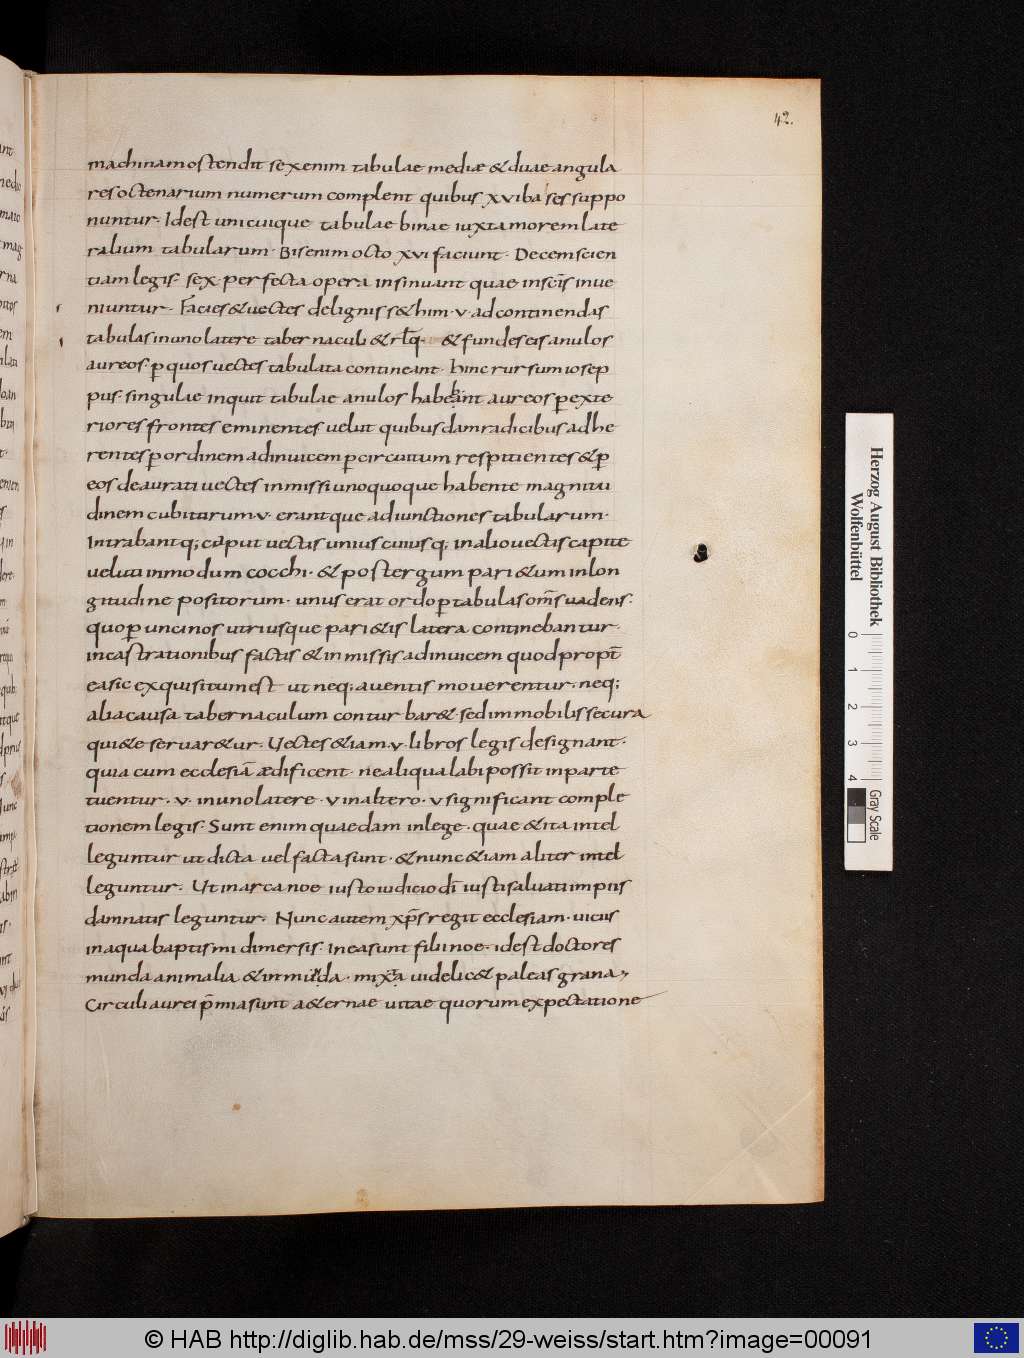 42.
machinam ostendit sex enim tabulae mediæ & duae angula
res octenarium numerum complent quibus xvi bases suppo
nuntur · Idest unicuique tabulae binae iuxta morem late
ralium tabularum · Bis enim octo xvi faciunt · Decem scien
tiam legis · sex · perfecta opera insinuant quae in scīs inue
niuntur · Facies & uectes de lignis s&him · v · ad continendas
tabulas in uno latere tabernaculi & rlq̄ · & fundes eis anulos
aureos · ꝑ quos uectes tabulata contineant · hinc rursum iosep
pus · singulae inquit tabulae anulos habebant aureos ꝑ exte
riores frontes eminentes uelut quibusdam radicibus adhe
rentes ꝑ ordinem adinuicem ꝑ circuitum respitientes & ꝑ
eos deaurati uectes inmissi unoquoque habente magnitu
dinem cubitorum · v · erantque adiunctiones tabularum ·
Intrabantq; caput uectis unius cuiusq; in alio uectis capite
ueluti inmodum cocchi · & post ergum pari&um in lon
gitudine positorum · unus erat ordo ꝑ tabulas om̄s uadens ·
quo ꝑ uncinos utriusque pari&is latera continebantur ·
incastrationibus factis & inmissis adinuicem quod propt̄
ea sic exquisitum est ut neq; auentis mouerentur · neq;
alia causa tabernaculum conturbar& · sed immobilis secura
qui&e seruar&ur · Uectes &iam · v · libros legis designant ·
quia cum ecclesiā ædificent · ne aliqua labi possit in parte
tuentur · v · in uno latere · v in altero · v significant comple
tionem legis · Sunt enim quaedam in lege · quae & ita intel
leguntur ut dicta uel facta sunt · & nunc &iam aliter intel
leguntur · Ut in arca noe iusto iudicio dī iusti saluati impiis
damnatis leguntur · Nunc autem xp̄s regit ecclesiam · uiciis
in aqua baptismi dimersis · In ea sunt filii noe · idest doctores
munda animalia & inmunda · mixta uidelic& paleas grana ·
Circuli aurei p̄mia sunt a&ernae uitae quorum expectatione
Herzog August Bibliothek
Wolfenbüttel
0 1 2 3 4
Gray Scale
© HAB http://diglib.hab.de/mss/29-weiss/start.htm?image=00091